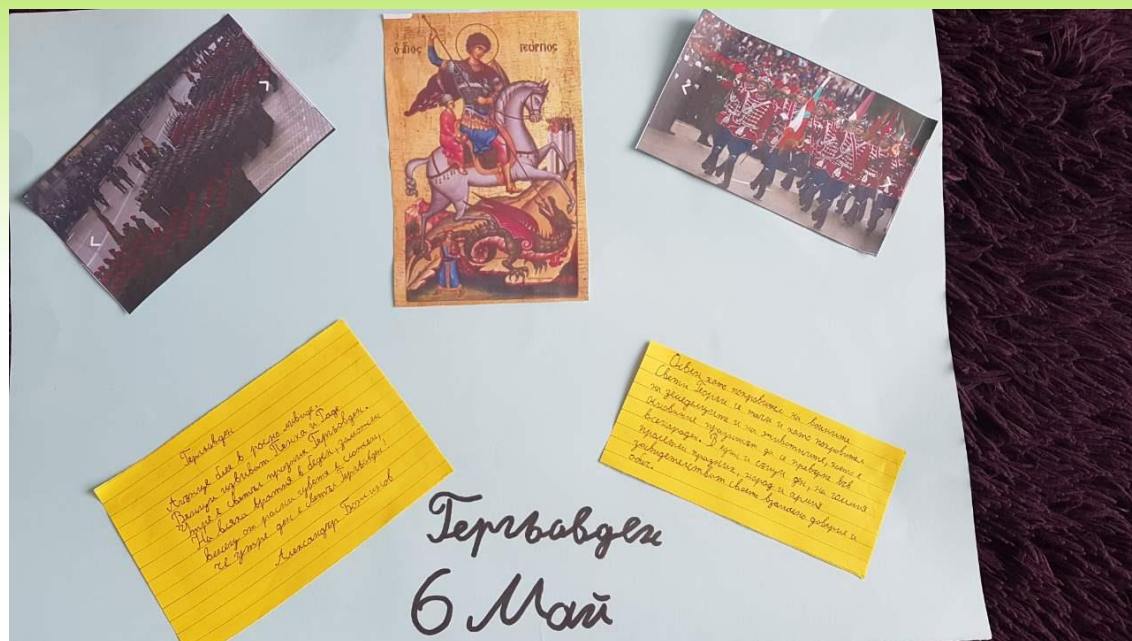 ο άγιος γεώργιος
Гергьовден
Агънце блее в росна ливада,
Венци извиват Пенка и Рада
Утре е светъл празник Гергьовден.
На всяка вратня в беден, заможен
Венец от росни цветя е сложен,
че утре ден е светъл Гергьовден!
Александър Божинов
Освен като покровител на воините
Свети Георги се тачи и като покровител
на земеделците и на животните, което е
основание празникът да се превърне във
всенароден. В и ден, на големия
пролетен празник, народ и армия
засвидетелстват своето взаимно доверие и
обич.
Гергьовден
6 Май